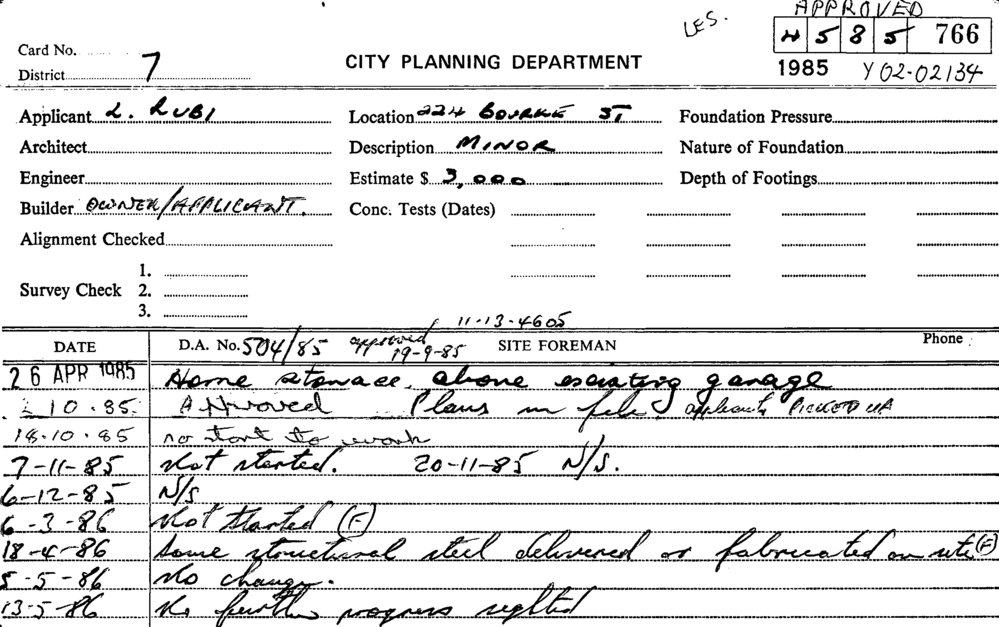 LES. APPROVED
4 5 8 5 766
Card No.
District 7 CITY PLANNING DEPARTMENT 1985 Y 02-02134
Applicant L. RUBI Location 224 BOURKE ST Foundation Pressure
Architect Description MINOR Nature of Foundation
Engineer Estimate $ 3,000 Depth of Footings
Builder OWNER/APPLICANT. Conc. Tests (Dates)
Alignment Checked
1.
Survey Check 2.
3.
11-13-4605
DATE D.A. No. 504/85 approved 19-9-85 SITE FOREMAN Phone
26 APR 1985 Home storage above existing garage
10.85 Approved Plans in file applicants PICKED UP
18.10.85 no start to work
7-11-85 Not started. 20-11-85 N/S.
6-12-85 N/S
6-3-86 Not Started (F)
18-4-86 Some structural steel delivered or fabricated on site (F)
5-5-86 No change.
13-5-86 No further progress sighted